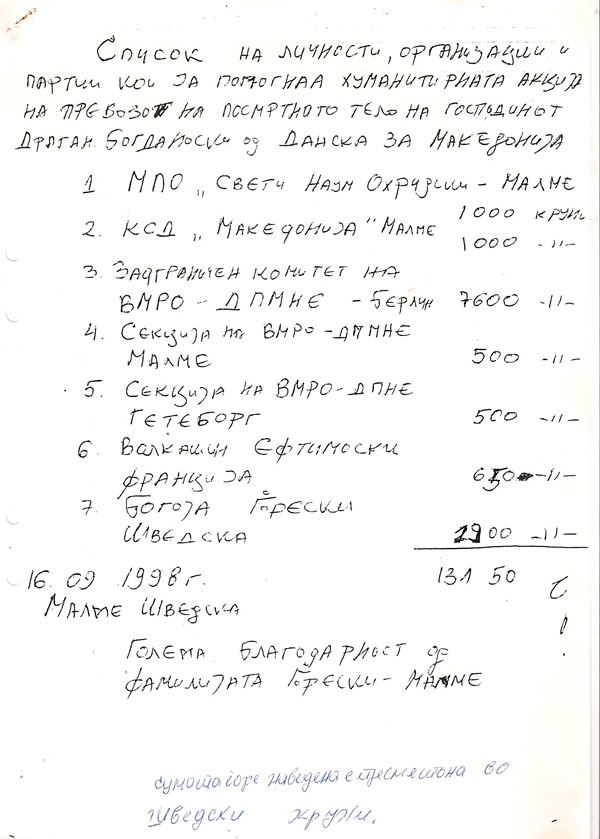 Список на личности, организации и
партии кои ја помогнаа хуманитирната акција
на превозот на посмртното тело на господинот
Драган Богданоски од Данска за Македонија
1 МПО „Свети Наум Охридски - Малме
1000 круни
2. КСД „Македонија" Малме
1000 -11-
3. Задграничен комитет на
ВМРО - ДПМНЕ - Берлин 7600 -11-
4. Секција на ВМРО-ДПМНЕ
Малме 500 -11-
5. Секција на ВМРО-ДПНЕ
Гетеборг 500 -11-
6 Волкашин Ефтимоски
Франција 650 -11-
7. Богоја Ѓорески
Шведска 1900 -11-
16. 09 1998 г. 131 50
Малме Шведска
Голема благодарност од
фамилијата Ѓорески - Малме
сумата горе наведена е
во
Шведски круни.